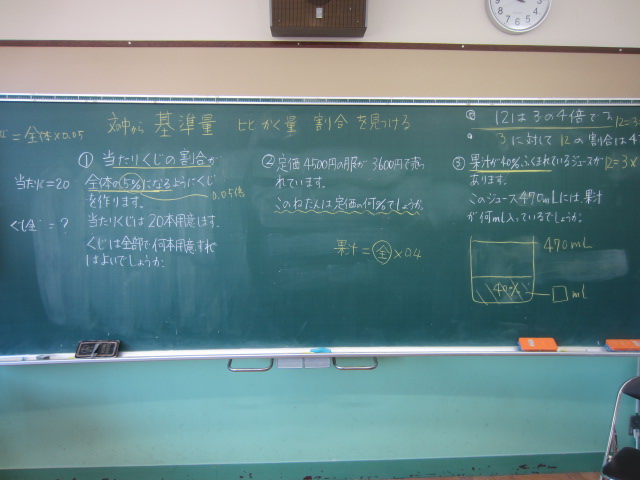 文中から 基準量 比かく量 割合 を見つける
= 全体×0.05
当たり = 20
= ?
① 当たりくじの割合が
全体の5%になるようにくじ
を作ります。
0.05倍
当たりくじは20本用意します。
くじは全部で何本用意すれ
ばよいでしょうか。
② 定価4500円の服が3600円で売
れています。
このねだんは定価の何%でしょうか。
果汁 = 全×0.4
12は3の4倍です
12=3×
3に対して12の割合は4
③ 果汁が40%ふくまれているジュースが
12=3×
あります。
このジュース470mLには、果汁
が何mL入っているでしょうか。
470mL
40%
□mL